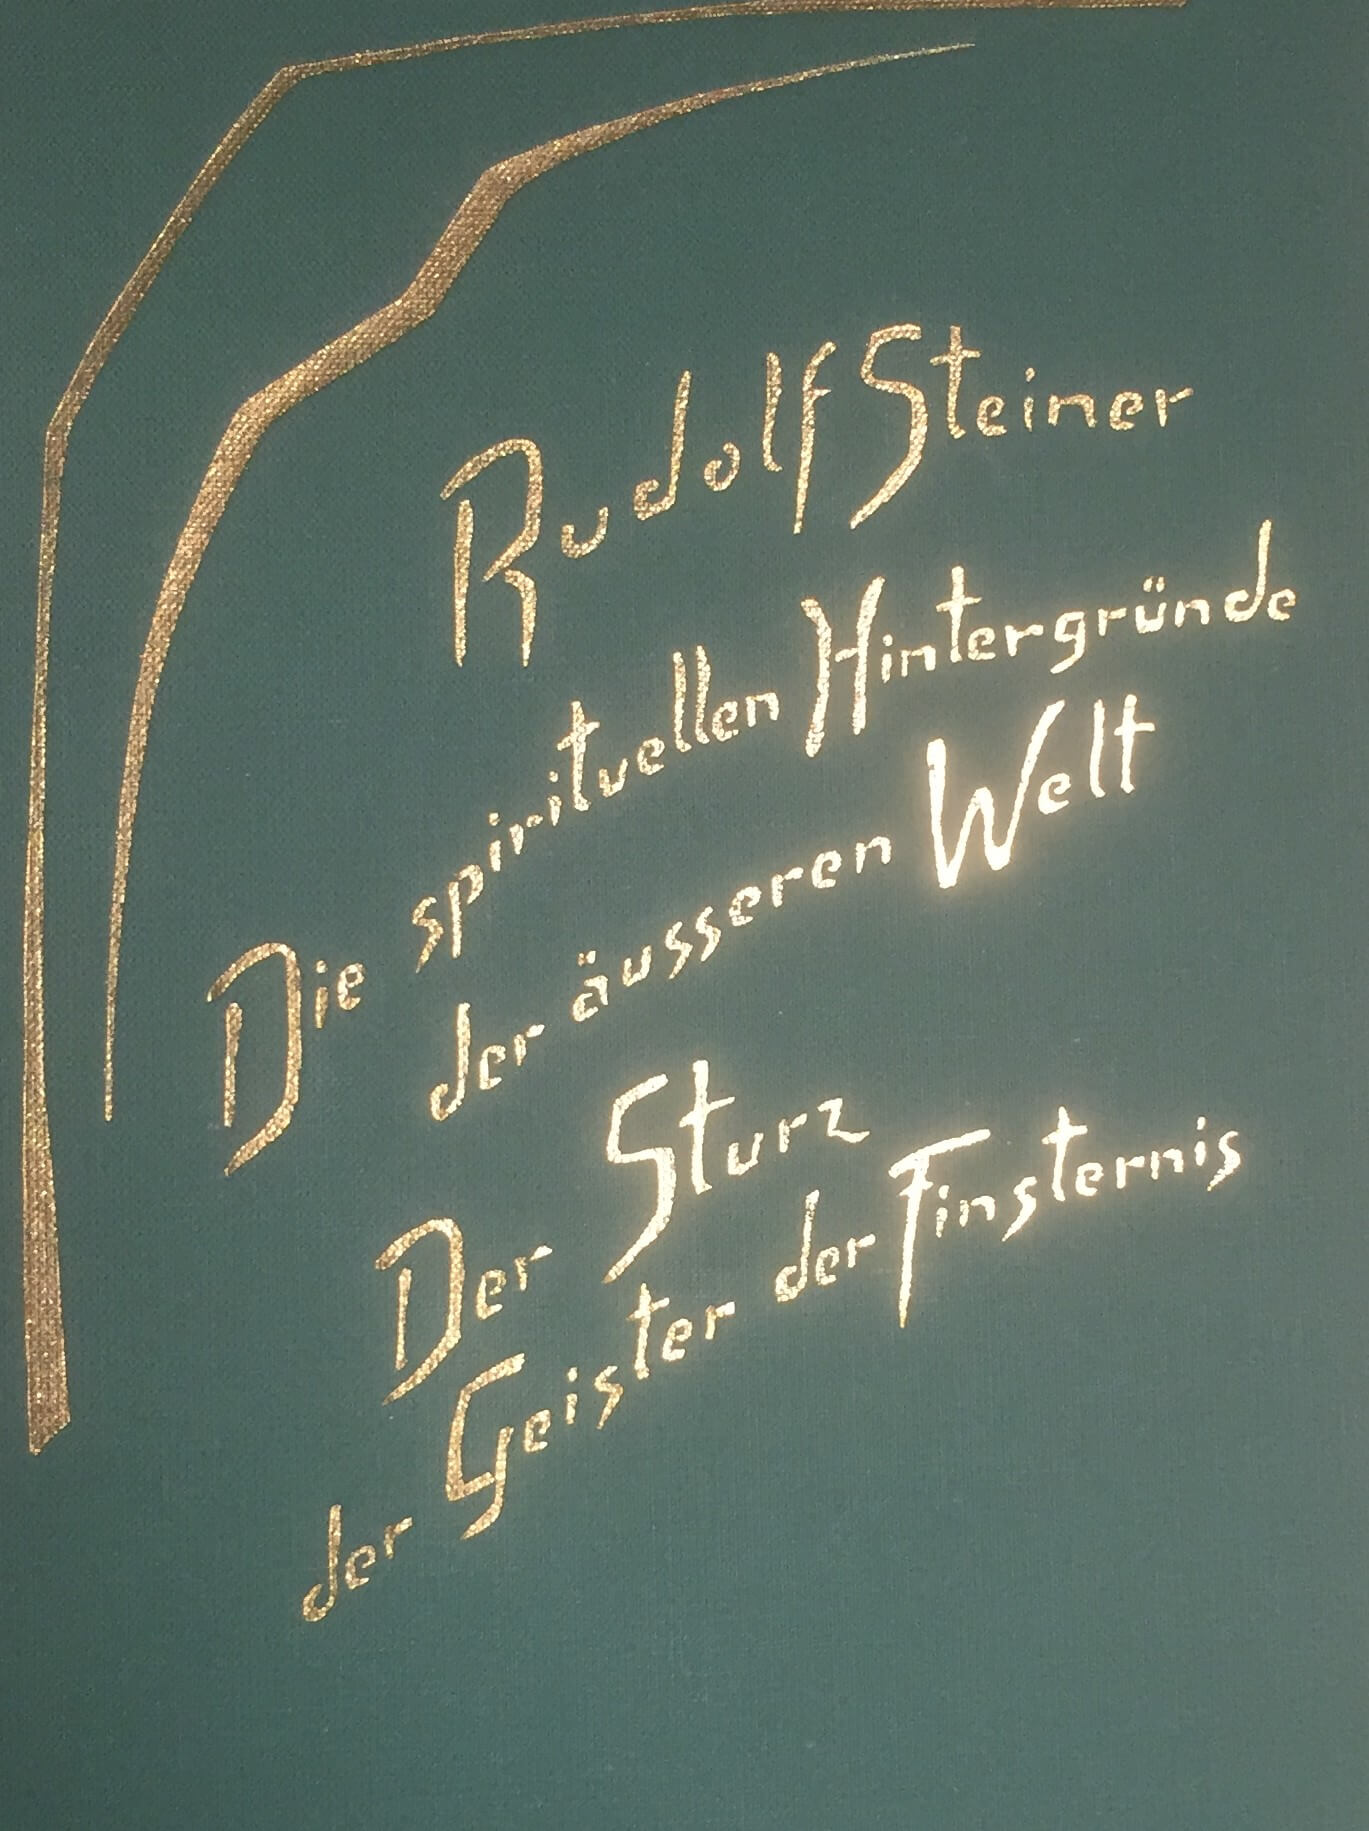 Rudolf Steiner
Die spirituellen Hintergründe
der äusseren Welt
Der Sturz
der Geister der Finsternis